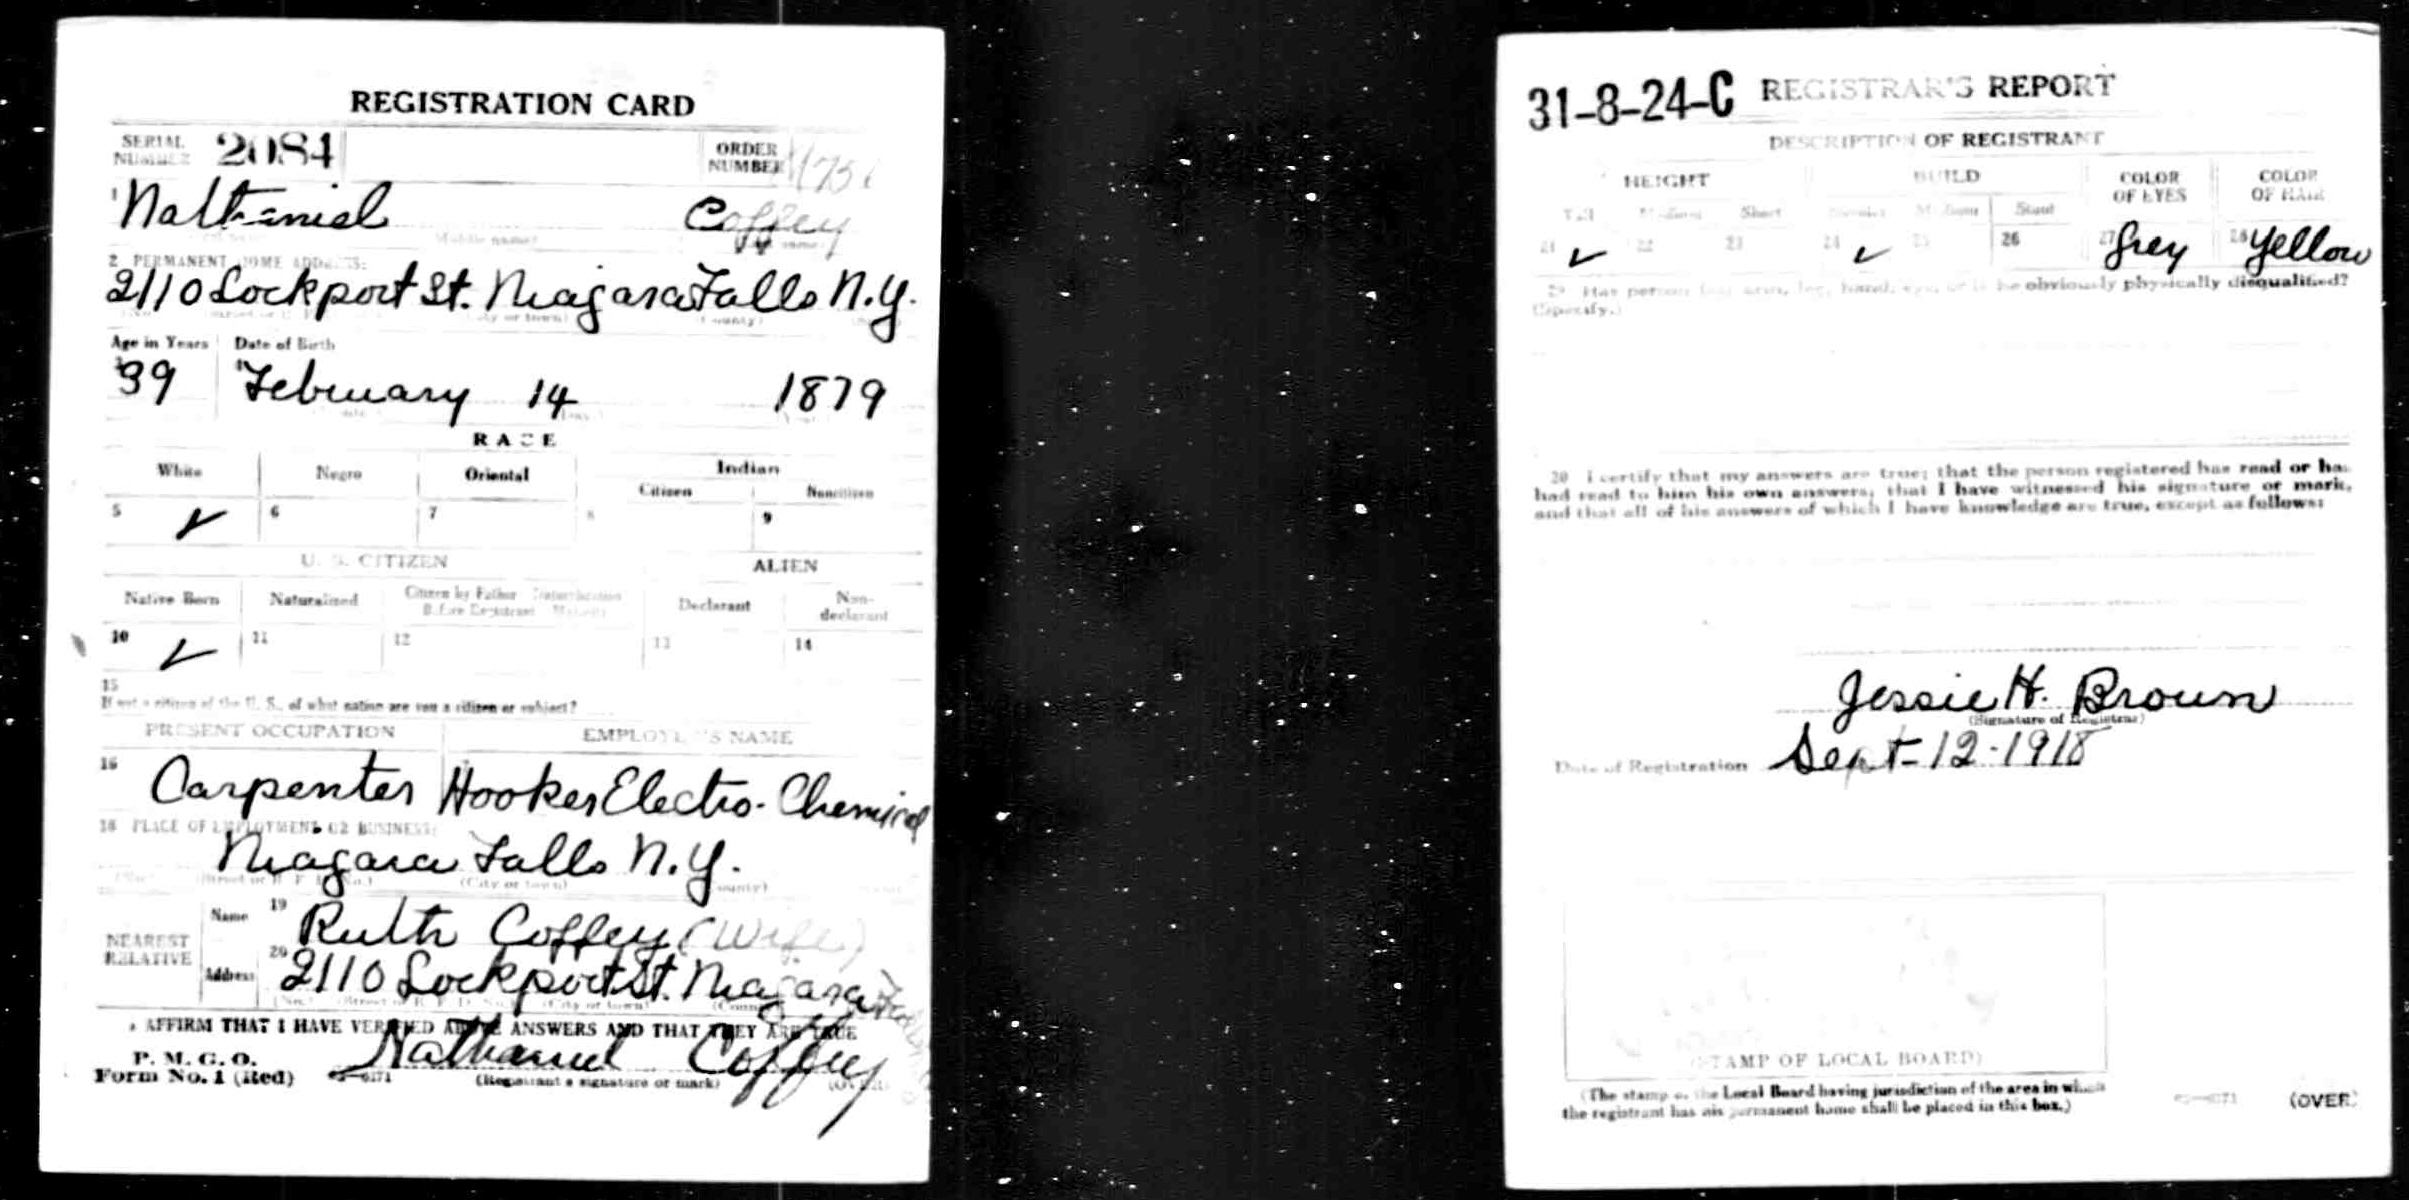 REGISTRATION CARD
SERIAL NUMBER 2084 ORDER NUMBER
1 Nathaniel Coffey
(Middle name)
2 PERMANENT HOME ADDRESS:
2110 Lockport St. Niagara Falls N.Y.
Age in Years Date of Birth
3 39 4 February 14 1879
RACE
White Negro Oriental Indian
Citizen Noncitizen
5 ✓ 6 7 8 9
U. S. CITIZEN ALIEN
Native Born Naturalized Citizen by Father's Naturalization Before Registrant's Majority Declarant Non-declarant
10 ✓ 11 12 13 14
15
If not a citizen of the U. S., of what nation are you a citizen or subject?
PRESENT OCCUPATION EMPLOYER'S NAME
16 Carpenter Hooker Electro-Chemical
18 PLACE OF EMPLOYMENT OR BUSINESS:
Niagara Falls N.Y.
(No.) (Street or R. F. D. No.) (City or town) (County)
NEAREST RELATIVE Name 19 Ruth Coffey (Wife)
Address 20 2110 Lockport St. Niagara Falls
(No.) (Street or R. F. D. No.) (City or town) (County)
I AFFIRM THAT I HAVE VERIFIED ABOVE ANSWERS AND THAT THEY ARE TRUE
P. M. G. O.
Form No. 1 (Red) Nathaniel Coffey
(Registrant's signature or mark) (OVER)
31-8-24-C REGISTRAR'S REPORT
DESCRIPTION OF REGISTRANT
HEIGHT BUILD COLOR OF EYES COLOR OF HAIR
Tall Medium Short Slender Medium Stout
21 ✓ 22 23 24 ✓ 25 26 27 Grey 28 Yellow
29 Has person lost arm, leg, hand, eye, or is he obviously physically disqualified?
(Specify.)
30 I certify that my answers are true; that the person registered has read or has
had read to him his own answers; that I have witnessed his signature or mark,
and that all of his answers of which I have knowledge are true, except as follows:
Jessie H. Brown
(Signature of Registrar)
Date of Registration Sept-12-1918
(STAMP OF LOCAL BOARD)
(The stamp of the Local Board having jurisdiction of the area in which
the registrant has his permanent home shall be placed in this box.)
(OVER)